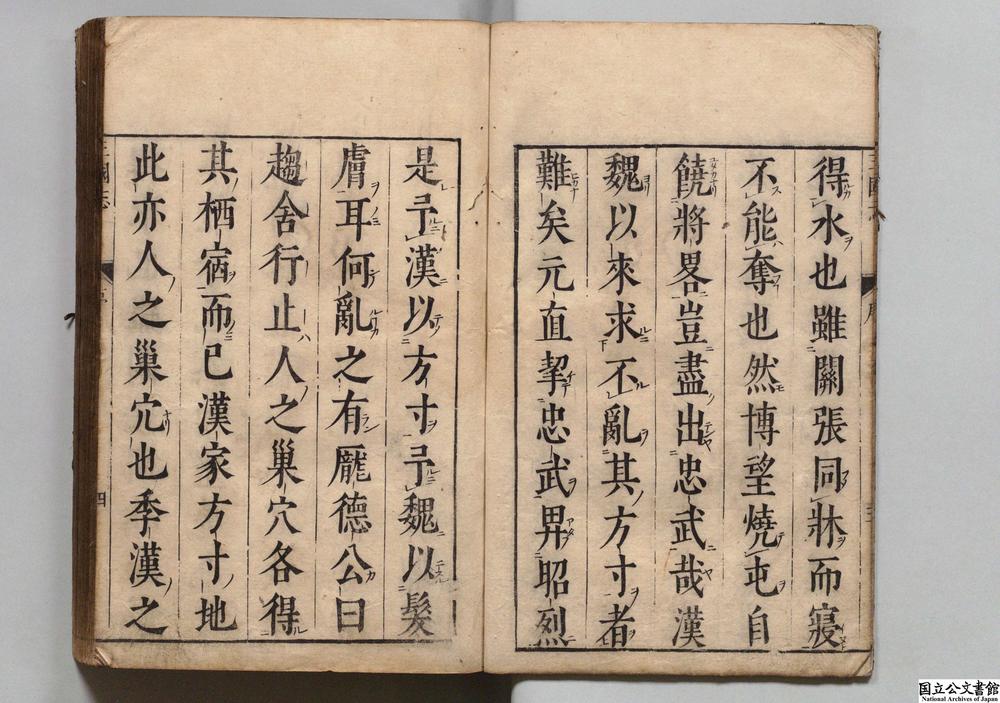 得水也雖關張同牀而寢
不能奪也然博望燒屯自
饒將畧豈盡出忠武哉漢
魏以來求不亂其方寸者
難矣元直挈忠武畀昭烈
是予漢以方寸予魏以髮
膚耳何亂之有龐德公曰
趨舍行止人之巢穴各得
其栖宿而已漢家方寸地
此亦人之巢穴也季漢之
四
国立公文書館
National Archives of Japan